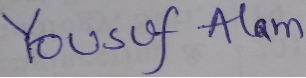 Yousuf Alam